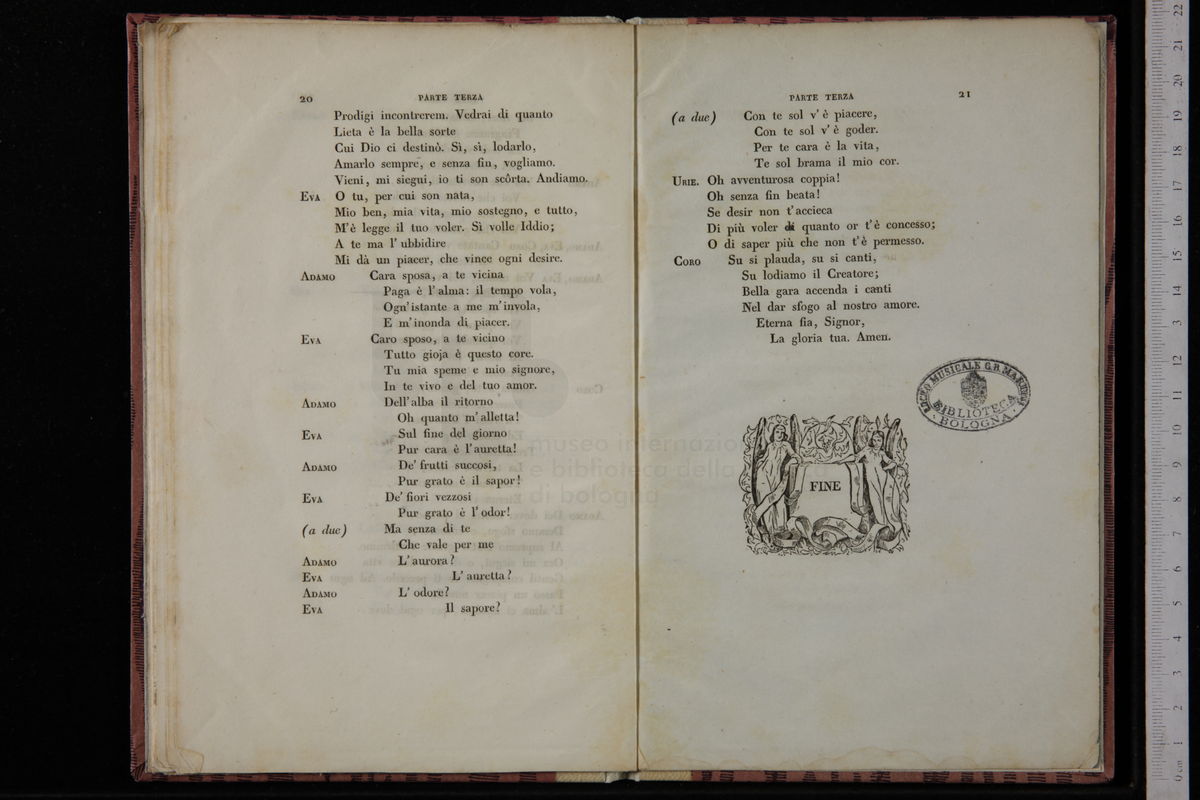 20
PARTE TERZA
Prodigi incontrerem. Vedrai di quanto
Lieta è la bella sorte
Cui Dio ci destinò. Sì, sì, lodarlo,
Amarlo sempre, e senza fin, vogliamo.
Vieni, mi siegui, io ti son scôrta. Andiamo.
EVA O tu, per cui son nata,
Mio ben, mia vita, mio sostegno, e tutto,
M'è legge il tuo voler. Sì volle Iddio;
A te ma l' ubbidire
Mi dà un piacer, che vince ogni desire.
ADAMO Cara sposa, a te vicina
Paga è l' alma: il tempo vola,
Ogn' istante a me m' invola,
E m' inonda di piacer.
EVA Caro sposo, a te vicino
Tutto gioja è questo core.
Tu mia speme e mio signore,
In te vivo e del tuo amor.
ADAMO Dell' alba il ritorno
Oh quanto m' alletta!
EVA Sul fine del giorno
Pur cara è l' auretta!
ADAMO De' frutti succosi,
Pur grato è il sapor!
EVA De' fiori vezzosi
Pur grato è l' odor!
(a due) Ma senza di te
Che vale per me
ADAMO L' aurora?
EVA L' auretta?
ADAMO L' odore?
EVA Il sapore?
PARTE TERZA
21
(a due) Con te sol v' è piacere,
Con te sol v' è goder.
Per te cara è la vita,
Te sol brama il mio cor.
URIE. Oh avventurosa coppia!
Oh senza fin beata!
Se desir non t' accieca
Di più voler di quanto or t' è concesso;
O di saper più che non t' è permesso.
CORO Su si plauda, su si canti,
Su lodiamo il Creatore;
Bella gara accenda i canti
Nel dar sfogo al nostro amore.
Eterna fia, Signor,
La gloria tua. Amen.
LICEO MUSICALE G.B. MARTINI
BIBLIOTECA
BOLOGNA
FINE
museo internazio
e biblioteca della
di bologna